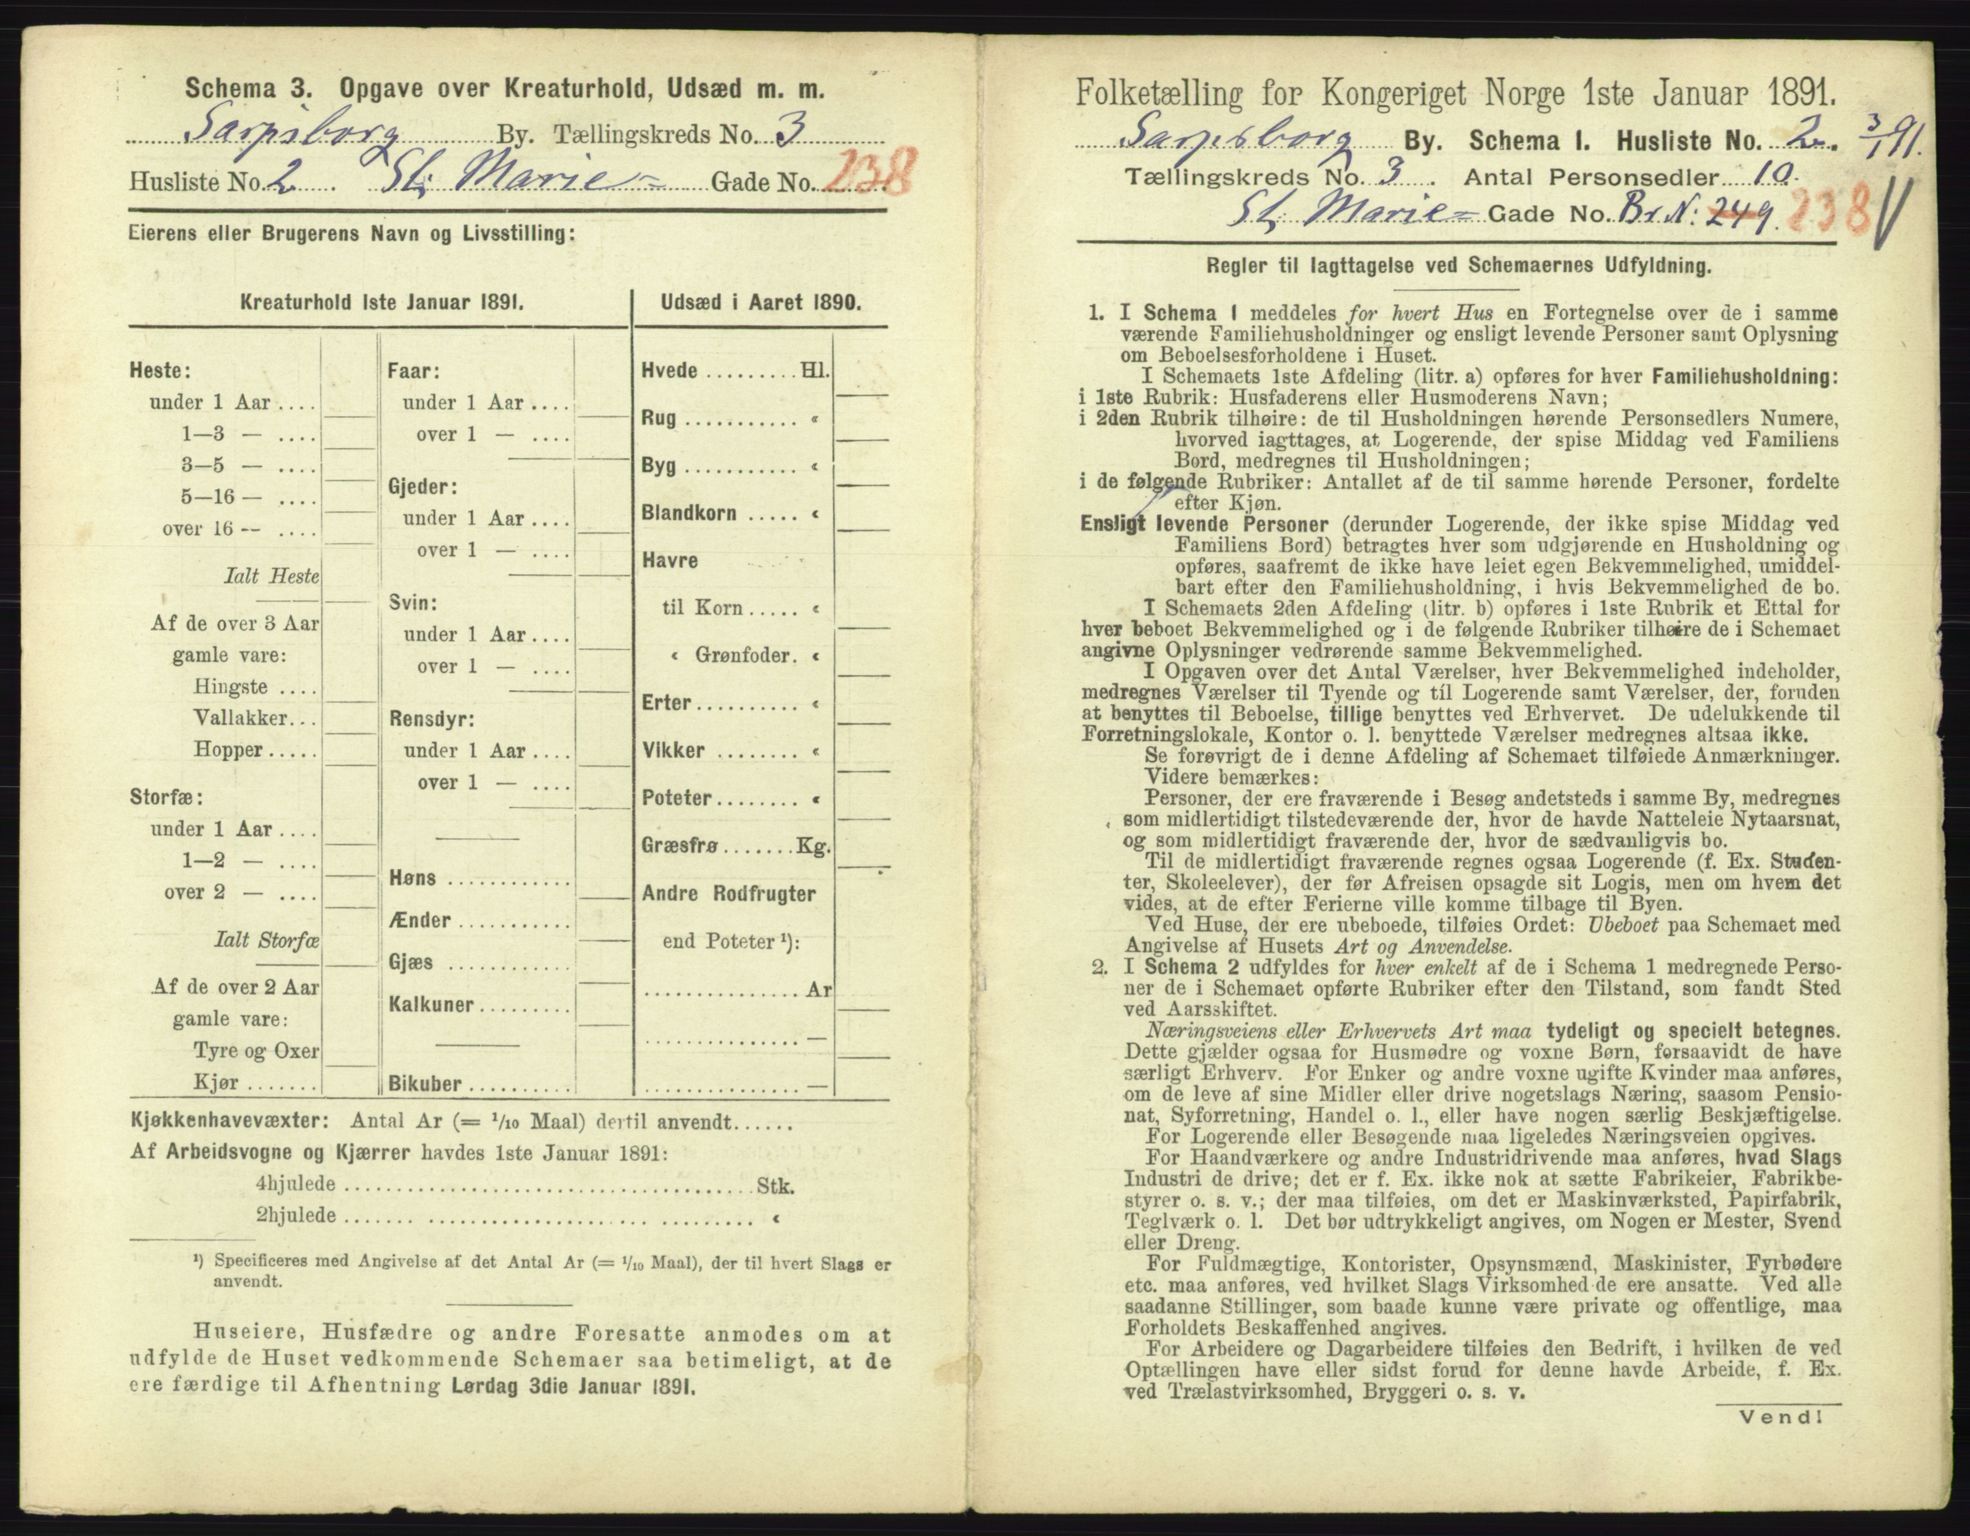 Schema 3. Opgave over Kreaturhold, Udsæd m. m.
Sarpsborg By. Tællingskreds No. 3
Husliste No. 2. St. Marie= Gade No. 238
Eierens eller Brugerens Navn og Livsstilling:
Kreaturhold 1ste Januar 1891.
Heste:
under 1 Aar ....
1—3 — ....
3—5 — ....
5—16 — ....
over 16 -- ....
Ialt Heste
Af de over 3 Aar
gamle vare:
Hingste ....
Vallakker...
Hopper .....
Storfæ:
under 1 Aar ....
1—2 — ....
over 2 — ....
Ialt Storfæ
Af de over 2 Aar
gamle vare:
Tyre og Oxer
Kjør .......
Faar:
under 1 Aar ....
over 1 — ....
Gjeder:
under 1 Aar ....
over 1 — ....
Svin:
under 1 Aar ....
over 1 — ....
Rensdyr:
under 1 Aar ....
over 1 — ....
Høns ............
Ænder ...........
Gjæs ............
Kalkuner.........
Bikuber ..........
Udsæd i Aaret 1890.
Hvede ......... Hl.
Rug ........... «
Byg ........... «
Blandkorn ..... «
Havre
til Korn ..... «
« Grønfoder. «
Erter .......... «
Vikker ......... «
Poteter ........ «
Græsfrø ....... Kg.
Andre Rodfrugter
end Poteter ¹):
............... Ar
............... —
............... —
Kjøkkenhavevæxter: Antal Ar (= 1/10 Maal) dertil anvendt......
Af Arbeidsvogne og Kjærrer havdes 1ste Januar 1891:
4hjulede ....................................... Stk.
2hjulede ....................................... «
¹) Specificeres med Angivelse af det Antal Ar (= 1/10 Maal), der til hvert Slags er
anvendt.
Huseiere, Husfædre og andre Foresatte anmodes om at
udfylde de Huset vedkommende Schemaer saa betimeligt, at de
ere færdige til Afhentning Lørdag 3die Januar 1891.
Folketælling for Kongeriget Norge 1ste Januar 1891.
Sarpsborg By. Schema 1. Husliste No. 2. 3/1 91.
Tællingskreds No. 3. Antal Personsedler 10.
St. Marie= Gade No. Br. N: 249. 238
Regler til Iagttagelse ved Schemaernes Udfyldning.
1. I Schema 1 meddeles for hvert Hus en Fortegnelse over de i samme
værende Familiehusholdninger og ensligt levende Personer samt Oplysning
om Beboelsesforholdene i Huset.
I Schemaets 1ste Afdeling (litr. a) opføres for hver Familiehusholdning:
i 1ste Rubrik: Husfaderens eller Husmoderens Navn;
i 2den Rubrik tilhøire: de til Husholdningen hørende Personsedlers Numere,
hvorved iagttages, at Logerende, der spise Middag ved Familiens
Bord, medregnes til Husholdningen;
i de følgende Rubriker: Antallet af de til samme hørende Personer, fordelte
efter Kjøn.
Ensligt levende Personer (derunder Logerende, der ikke spise Middag ved
Familiens Bord) betragtes hver som udgjørende en Husholdning og
opføres, saafremt de ikke have leiet egen Bekvemmelighed, umiddel-
bart efter den Familiehusholdning, i hvis Bekvemmelighed de bo.
I Schemaets 2den Afdeling (litr. b) opføres i 1ste Rubrik et Ettal for
hver beboet Bekvemmelighed og i de følgende Rubriker tilhøire de i Schemaet
angivne Oplysninger vedrørende samme Bekvemmelighed.
I Opgaven over det Antal Værelser, hver Bekvemmelighed indeholder,
medregnes Værelser til Tyende og til Logerende samt Værelser, der, foruden
at benyttes til Beboelse, tillige benyttes ved Erhvervet. De udelukkende til
Forretningslokale, Kontor o. l. benyttede Værelser medregnes altsaa ikke.
Se forøvrigt de i denne Afdeling af Schemaet tilføiede Anmærkninger.
Videre bemærkes:
Personer, der ere fraværende i Besøg andetsteds i samme By, medregnes
som midlertidigt tilstedeværende der, hvor de havde Natteleie Nytaarsnat,
og som midlertidigt fraværende der, hvor de sædvanligvis bo.
Til de midlertidigt fraværende regnes ogsaa Logerende (f. Ex. Studen-
ter, Skoleelever), der før Afreisen opsagde sit Logis, men om hvem det
vides, at de efter Ferierne ville komme tilbage til Byen.
Ved Huse, der ere ubeboede, tilføies Ordet: Ubeboet paa Schemaet med
Angivelse af Husets Art og Anvendelse.
2. I Schema 2 udfyldes for hver enkelt af de i Schema 1 medregnede Perso-
ner de i Schemaet opførte Rubriker efter den Tilstand, som fandt Sted
ved Aarsskiftet.
Næringsveiens eller Erhvervets Art maa tydeligt og specielt betegnes.
Dette gjælder ogsaa for Husmødre og voxne Børn, forsaavidt de have
særligt Erhverv. For Enker og andre voxne ugifte Kvinder maa anføres,
om de leve af sine Midler eller drive nogetslags Næring, saasom Pensio-
nat, Syforretning, Handel o. l., eller have nogen særlig Beskjæftigelse.
For Logerende eller Besøgende maa ligeledes Næringsveien opgives.
For Haandværkere og andre Industridrivende maa anføres, hvad Slags
Industri de drive; det er f. Ex. ikke nok at sætte Fabrikeier, Fabrikbe-
styrer o. s. v.; der maa tilføies, om det er Maskinværksted, Papirfabrik,
Teglværk o. l. Det bør udtrykkeligt angives, om Nogen er Mester, Svend
eller Dreng.
For Fuldmægtige, Kontorister, Opsynsmænd, Maskinister, Fyrbødere
etc. maa anføres, ved hvilket Slags Virksomhed de ere ansatte. Ved alle
saadanne Stillinger, som baade kunne være private og offentlige, maa
Forholdets Beskaffenhed angives.
For Arbeidere og Dagarbeidere tilføies den Bedrift, i hvilken de ved
Optællingen have eller sidst forud for denne havde Arbeide, f. Ex.
ved Trælastvirksomhed, Bryggeri o. s. v.
Vend!